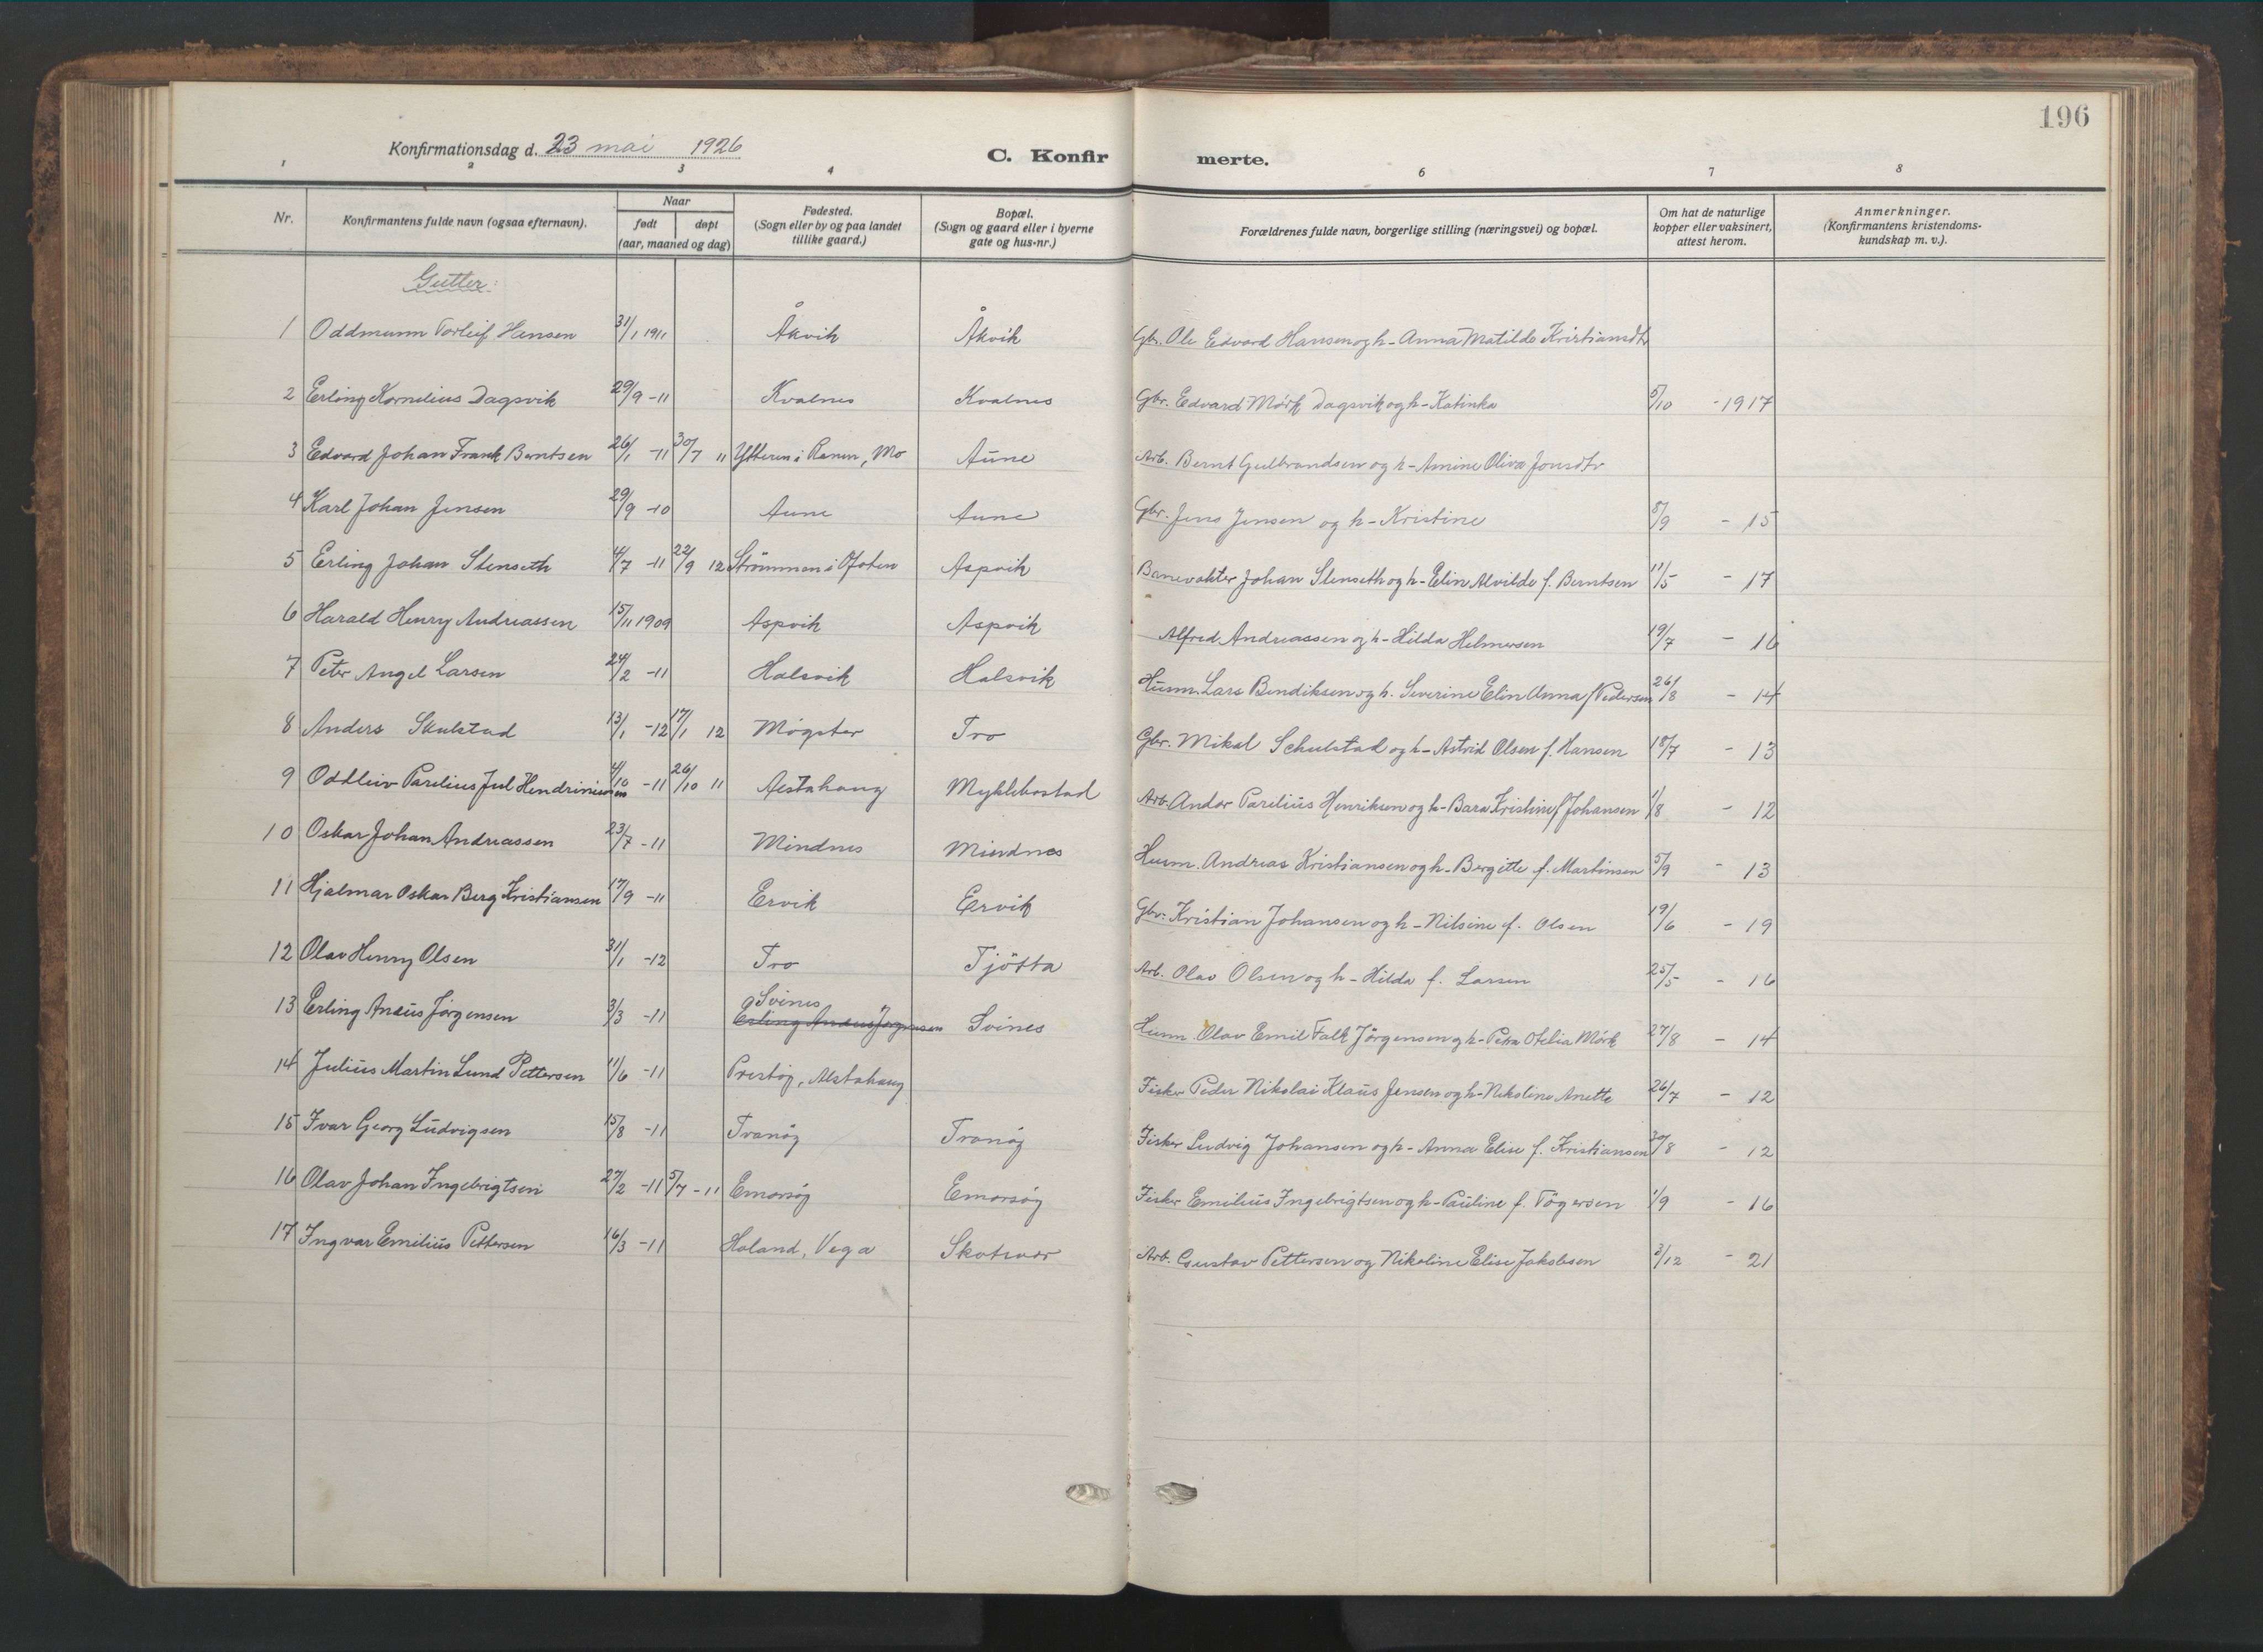 196
Konfirmationsdag d. 23 mai 1926
C. Konfirmerte.
1 2 3 4 6 7 8
Nr.
Konfirmantens fulde navn (ogsaa efternavn).
Naar
født døpt
(aar, maaned og dag)
Fødested.
(Sogn eller by og paa landet
tillike gaard.)
Bopæl.
(Sogn og gaard eller i byerne
gate og hus-nr.)
Forældrenes fulde navn, borgerlige stilling (næringsvei) og bopæl.
Om hat de naturlige
kopper eller vaksinert,
attest herom.
Anmerkninger.
(Konfirmantens kristendoms-
kundskap m. v.).
Gutter:
1 Oddmunn Torleif Hansen 31/1 1911 Åkvik Åkvik Gbr. Ole Edvard Hansen og h- Anna Matilde Kristiansdtr
2 Erling Kornelius Dagsvik 29/9 -11 Kvalnes Kvalnes Gbr. Edvard Mörk Dagsvik og h- Katinka 5/10 -1917
3 Edvard Johan Frank Berntsen 26/1 -11 30/7 11 Ytteren i Ranen, Mo Aune Arb. Bernt Gulbrandsen og h- Amine Oliva Jonsdtr
4 Karl Johan Jensen 29/9 -10 Aune Aune Gbr. Jens Jensen og h- Kristine 8/9 - 15
5 Erling Johan Stenseth 4/7 -11 22/9 12 Strömmen i Ofoten Aspvik Banevokter Johan Stenseth og h- Elin Alvilde f. Berntsen 11/5 - 17
6 Harald Henry Andreassen 15/11 1909 Aspvik Aspvik Alfred Andreassen og h- Hilda Helmersen 19/7 - 16
7 Peter Angel Larsen 24/2 -11 Halsvik Halsvik Husm. Lars Bendiksen og h. Severine Elin Anna f Pedersen 26/8 - 14
8 Anders Skulstad 13/1 -12 17/1 12 Møgster Tro Gbr. Mikal Schulstad og h- Astrid Olsen f. Hansen 18/7 - 13
9 Oddleiv Parelius Jul Hendriniussen 4/10 -11 26/10 11 Alstahaug Myklebostad Arb. Andor Parelius Henriksen og h- Bara Kristine f Johansen 1/8 - 12
10 Oskar Johan Andreassen 23/7 -11 Mindnes Mindnes Husm. Andreas Kristiansen og h- Bergitte f. Martinsen 5/9 - 13
11 Hjalmar Oskar Berg Kristiansen 17/9 -11 Ervik Ervik Gbr. Kristian Johansen og h- Nilsine f. Olsen 19/6 - 19
12 Olav Henry Olsen 31/1 -12 Tro Tjötta Arb. Olav Olsen og h- Hilda f. Larsen 25/5 - 16
13 Erling Aneus Jørgensen 3/3 -11 Svines Erling Aneus Jørgensen Svines Husm. Olav Emil Falk Jörgensen og h- Petra Otelia Mörk 27/8 - 14
14 Julius Martin Lund Pettersen 11/6 -11 Prestøy, Alstahaug Fisker Peder Nikolai Klaus Jensen og h- Nikoline Anette 26/7 - 12
15 Ivar Georg Ludvigsen 15/8 -11 Tranöy Tranöy Fisker Ludvig Johansen og h- Anna Elise f. Kristiansen 30/8 - 12
16 Olav Johan Ingebrigtsen 27/2 -11 5/7 -11 Emarsöy Emarsöy Fisker Emilius Ingebrigtsen og h- Pauline f. Tögersen 1/9 - 16
17 Ingvar Emilius Pettersen 16/3 -11 Holand, Vega Skotsvær Arb. Gustav Pettersen og Nikoline Elise Jakobsen 3/12 - 21